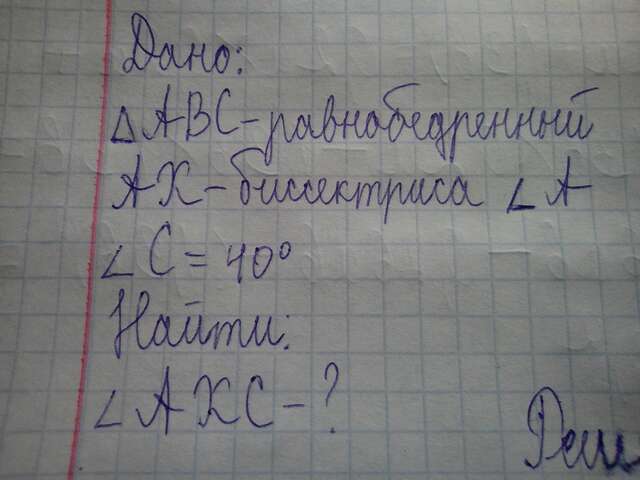 Дано:
△ABC-равнобедренный
AK-биссектриса ∠A
∠C=40°
Найти:
∠AKC-?
Реш